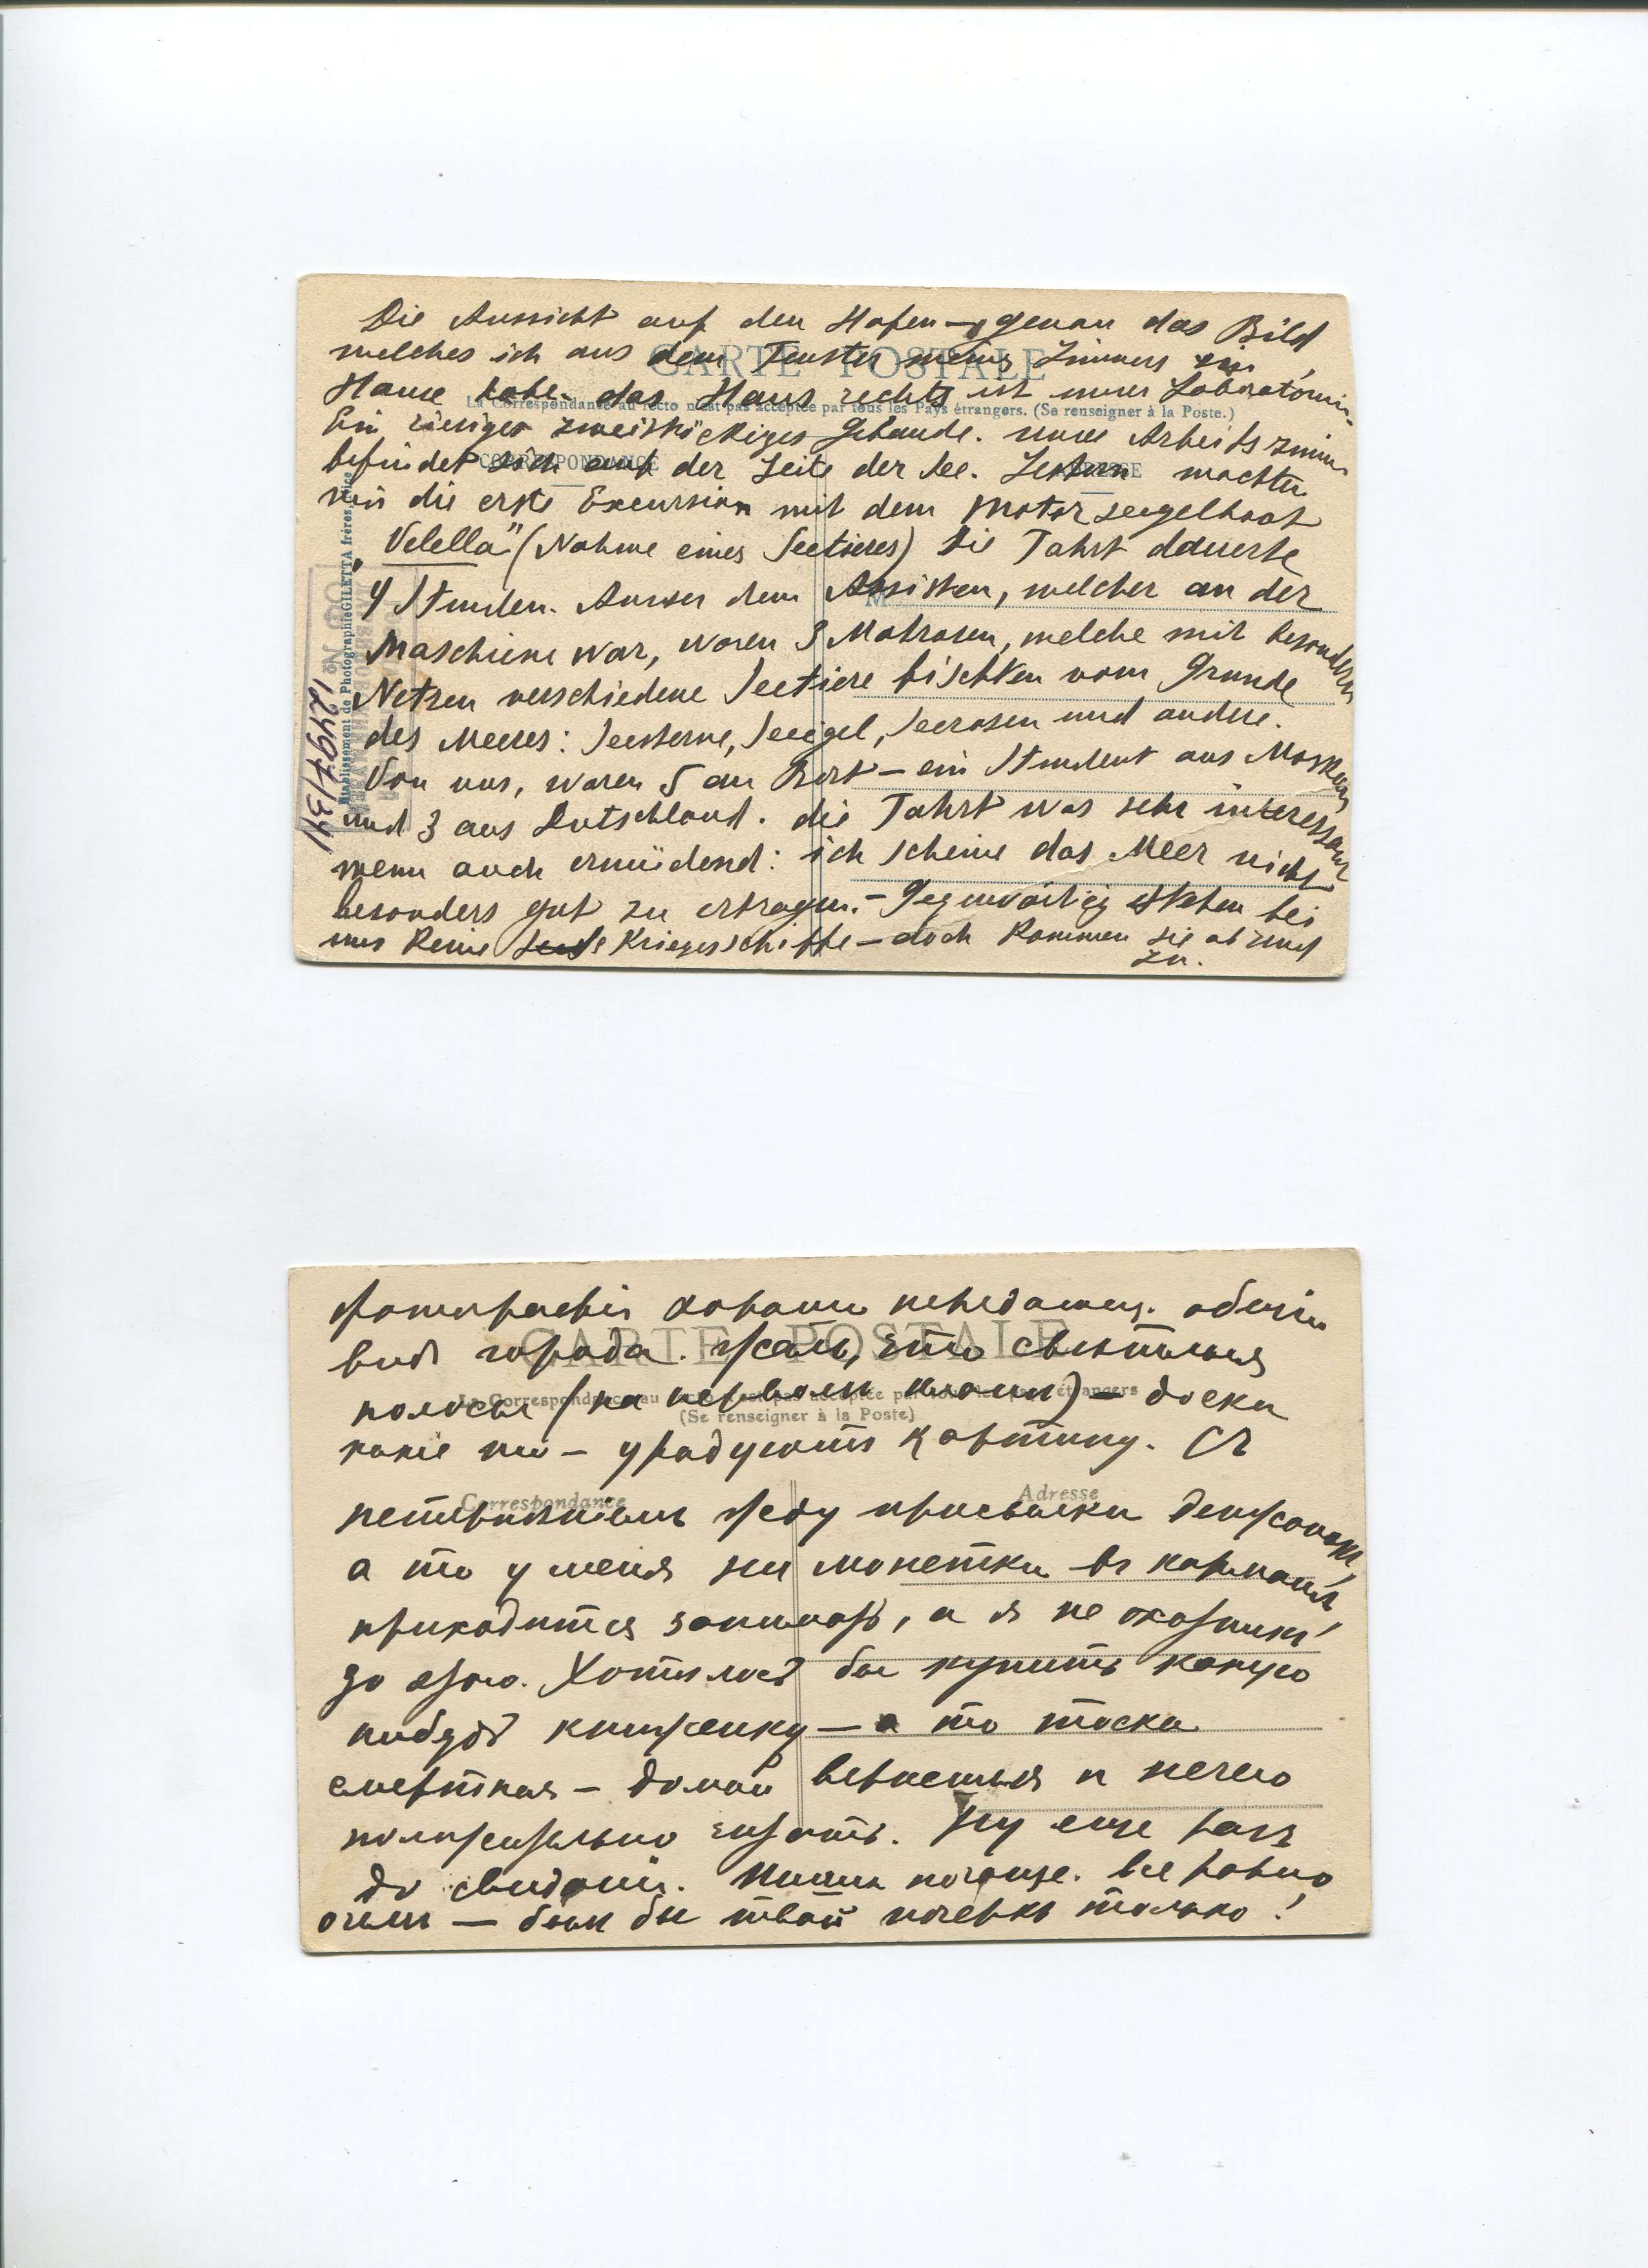 Die Aussicht auf den Hafen — genau das Bild
welches ich aus dem Fenster meines Zimmers im
Hause habe. das Haus rechts ist unser Laboratorium.
Ein riesiges zweistöckiges Gebaude. unser Arbeitszimmer
befindet sich auf der Seite der See. Gestern machten
wir die erste Excursion mit dem Motorseegelboot
„Velella" (Nahme eines Seetieres) Die Fahrt dauerte
4 Stunden. Ausser dem Assisten, welcher an der
Maschiene war, waren 3 Matrosen, welche mit besonderen
Netzen verschiedene Seetiere fischten vom Grunde
des Meeres: Seesterne, Seeigel, Seerosen und andere.
Von uns, waren 5 an Bort — ein Student aus Moskau,
und 3 aus Dutschland. die Fahrt was sehr interessant
wenn auch ermüdend: ich scheine das Meer nicht
besonders gut zu ertragen. — Gegenwärtig stehen bei
uns keine Kriegsschiffe — doch kommen sie ab und
zu.
CARTE POSTALE
La Correspondance au recto n'est pas acceptée par tous les Pays étrangers. (Se renseigner à la Poste.)
CORRESPONDANCE
M
Etablissement de Photographie GILETTA frères, Nice
12497/341
фотографія хорошо передаетъ общій
видъ города. Жаль, это свѣтлыя
полосы (на первомъ планѣ) — доски
какіе то — уродуютъ картину. Съ
нетерпѣніемъ жду присылки денжонокъ,
а то у меня ни монетки въ карманѣ,
приходится занимать, а я не охотникъ
до этого. Хотѣлось бы купить какую
нибудь книженку — а то тоска
смертная — домой вернешься и нечего
положительно читать. Ну еще разъ
до свиданія. Пиши почаще. Все равно
о чемъ — былъ бы твой почеркъ только!
CARTE POSTALE
La Correspondance au recto n'est pas acceptée par tous les pays étrangers
(Se renseigner à la Poste)
Correspondance
Adresse